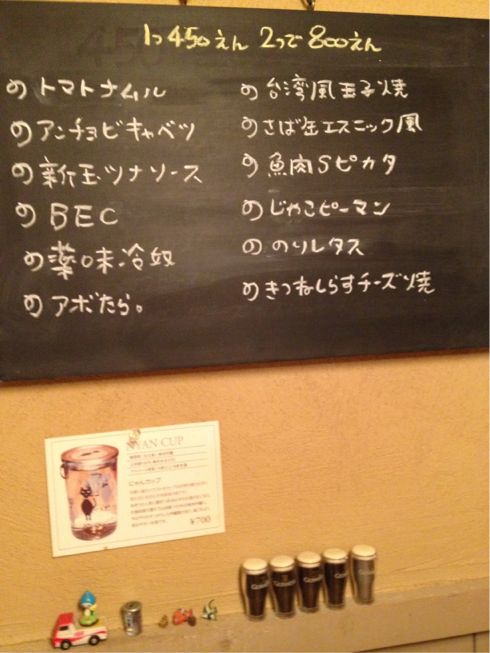 1つ450えん 2つで800えん
の トマトナムル
の アンチョビキャベツ
の 新玉ツナソース
の BEC
の 薬味冷奴
の アボたら。
の 台湾風玉子焼
の さば缶エスニック風
の 魚肉Sピカタ
の じゃこピーマン
の のりレタス
の きつねしらすチーズ焼
NYAN CUP
にゃんカップ
¥700